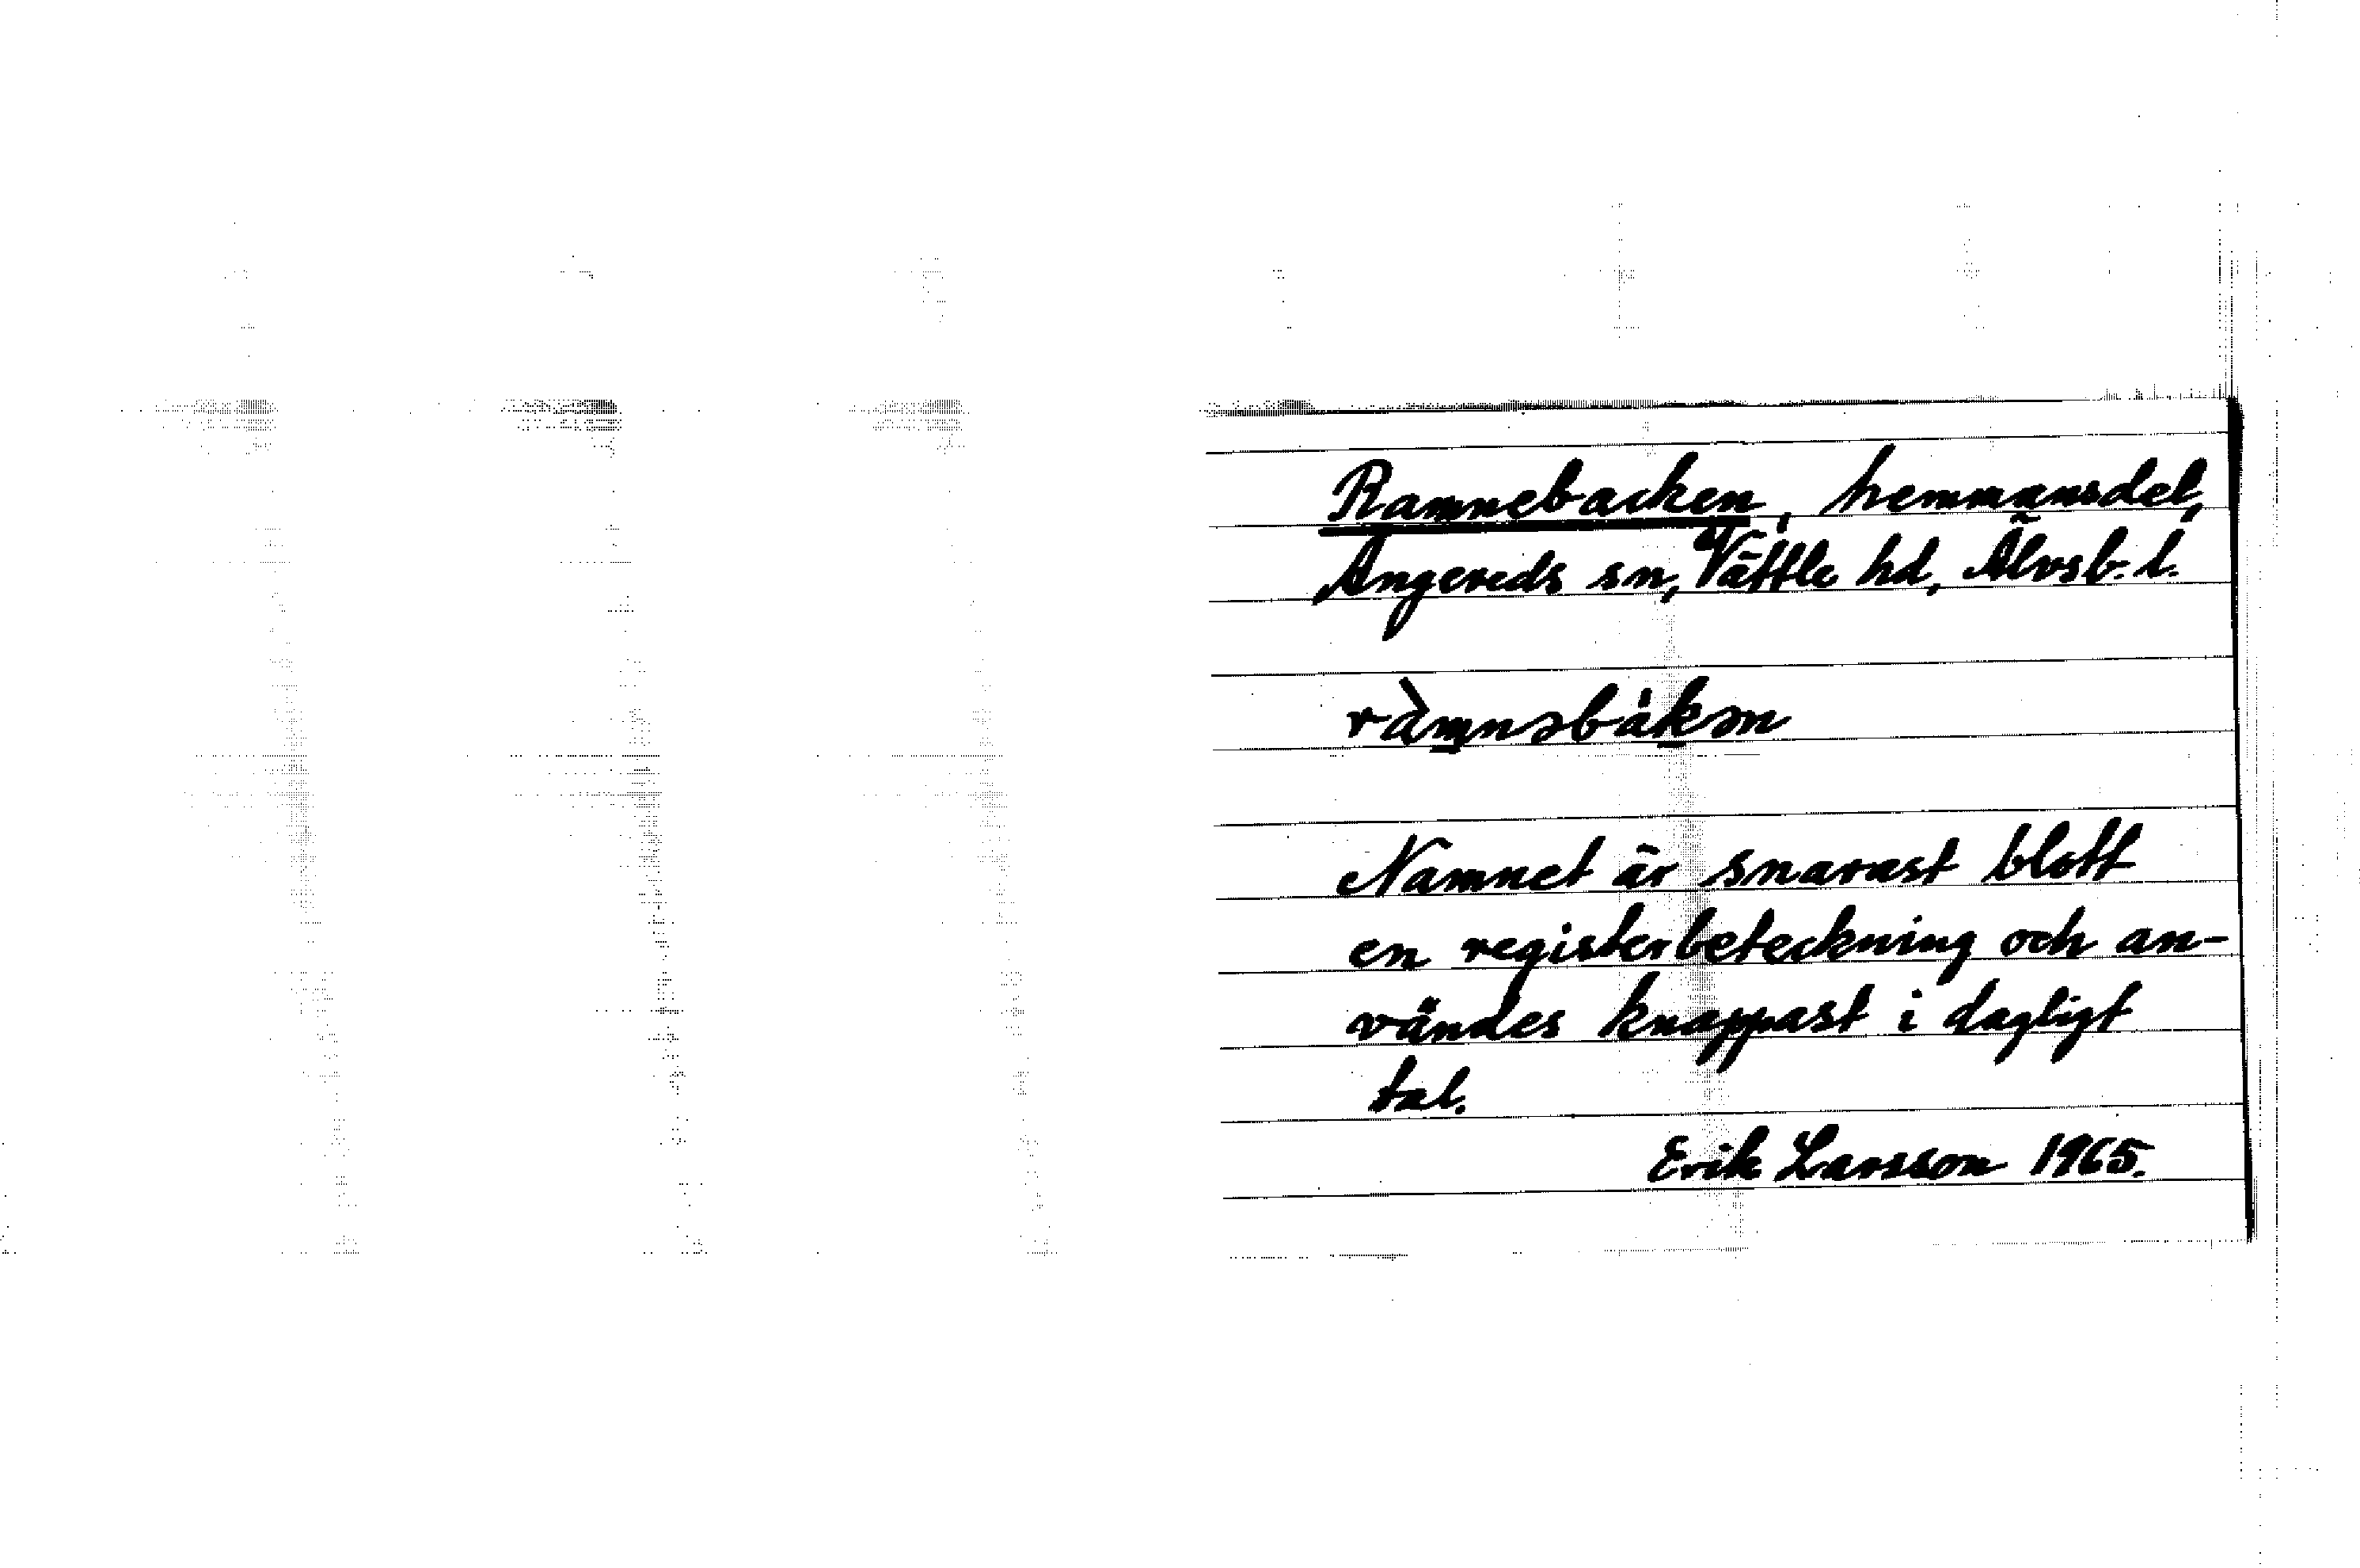 Ramnebacken, hemmansdel,
Angereds sn, Vättle hd, Älvsb. l.
ràmnəbákən
Namnet är snarast blott
en registerbeteckning och an-
vändes knappast i dagligt
tal.
Erik Larsson 1965.